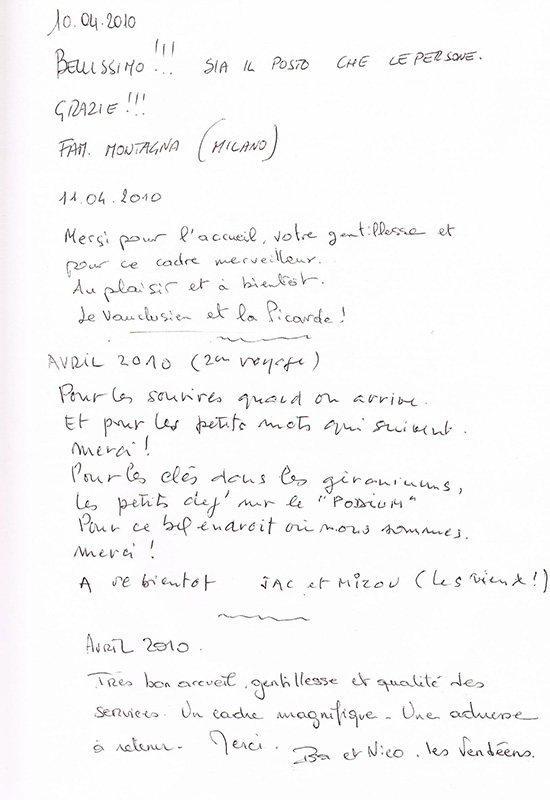 10.04.2010
BELLISSIMO!!! SIA IL POSTO CHE LE PERSONE.
GRAZIE!!!
FAM. MONTAGNA (MILANO)
11.04.2010
Merçi pour l'accueil, votre gentillesse et
pour ce cadre merveilleux.
Au plaisir et à bientôt.
Le Vauclusien et la Picarde!
AVRIL 2010 (2em voyage)
Pour les sourires quand on arrive.
Et pour les petits mots qui suivent.
Merci!
Pour les clés dans les géraniums,
Les petits dej' sur le "PODIUM"
Pour ce bel endroit où nous sommes.
Merci!
A re bientot JAC et MIZOU (Les vieux!)
AVRIL 2010.
Très bon accueil, gentillesse et qualité des
services. Un cadre magnifique - Une adresse
à retenir - Merci. Ba et Nico. les Vendéens.